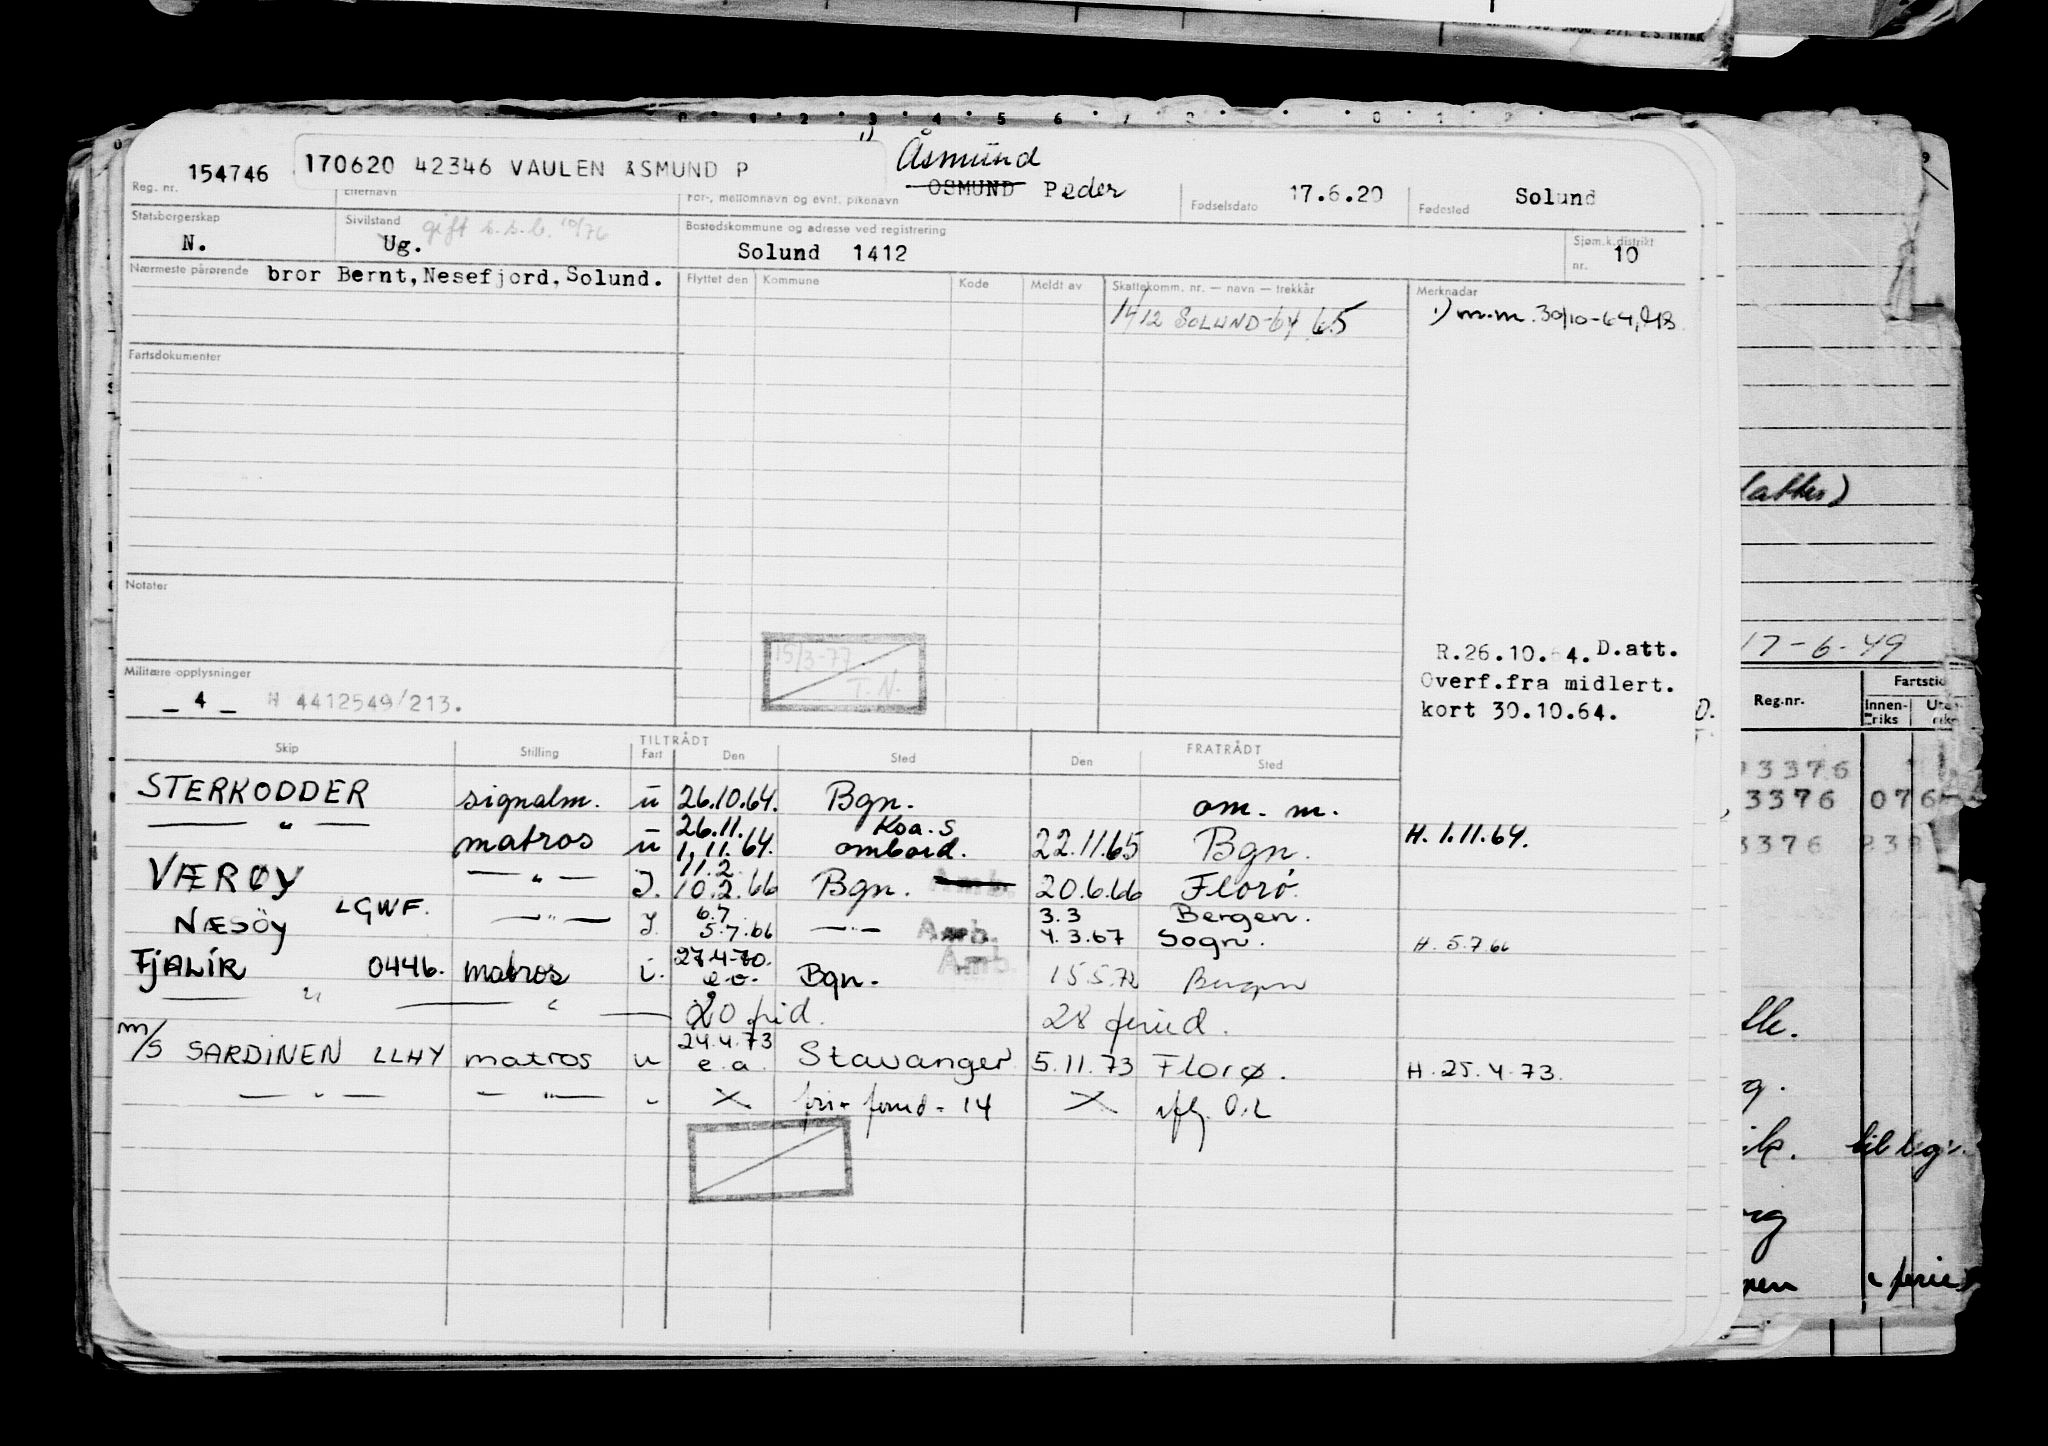 154746 170620 42346 VAULEN ÅSMUND P 1) Åsmund
OSMUND Peder 17.6.20 Solund
Reg. nr. Etternavn For-, mellomnavn og evnt. pikenavn Fødselsdato Fødested
Statsborgerskap Sivilstand gift s.s.b. 10/76 Bostedskommune og adresse ved registrering Sjøm.k.distrikt
N. Ug. Solund 1412 nr. 10
Nærmeste pårørende bror Bernt, Nesefjord, Solund. Flyttet den Kommune Kode Meldt av Skattekomm. nr. — navn — trekkår Merknader
1412 SOLUND-64 65 1) m.m. 30/10-64,
Fartsdokumenter
Notater
15/3-77
T.N.
R.26.10.64. D.att.
Overf.fra midlert.
kort 30.10.64.
Militære opplysninger
_ 4 _ H 4412549/213.
Skip Stilling TILTRÅDT FRATRÅDT
Fart Den Sted Den Sted
STERKODDER signalm. u 26.10.64. Bgn. om. m.
— " — matros u 26.11. 1.11.64. Koa.S ombord. 22.11.65 Bgn. H. 1.11.64.
VÆRØY — " — J. 11.2 10.2.66 Bgn. Amb. 20.6.66 Florø
NÆSÖY LGWF. — " — J. 6.7 5.7.66 — " — Amb. 3.3 4.3.67 Bergen. Sogn. H. 5.7.66
FJALIR 0446. matros i. 27.4-70. e.o. Bgn. Amb. 15.5.72 Bergen
— " — — " — 20 frid. 28 feried.
m/s SARDINEN LLHY matros u 24.4.73 e.a. Stavanger 5.11.73 Florø. H. 25.4.73.
— " — — " — " X fri + feried = 14 X
latter)
17-6-49
Reg.nr. Fartstid
Innen-riks
3376
3376 076
3376
til bgn.
ferie)